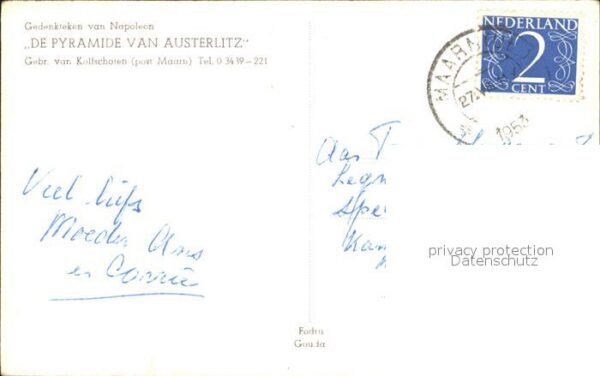 Gedenkteken van Napoleon
„DE PYRAMIDE VAN AUSTERLITZ"
Gebr. van Kolfschoten (post Maarn) Tel. 0 3439-221
NEDERLAND
2
CENT
MAARN
27
1953
Veel liefs
Moeder Ans
en Corrie
Aan
privacy protection
Datenschutz
Fodru
Gouda